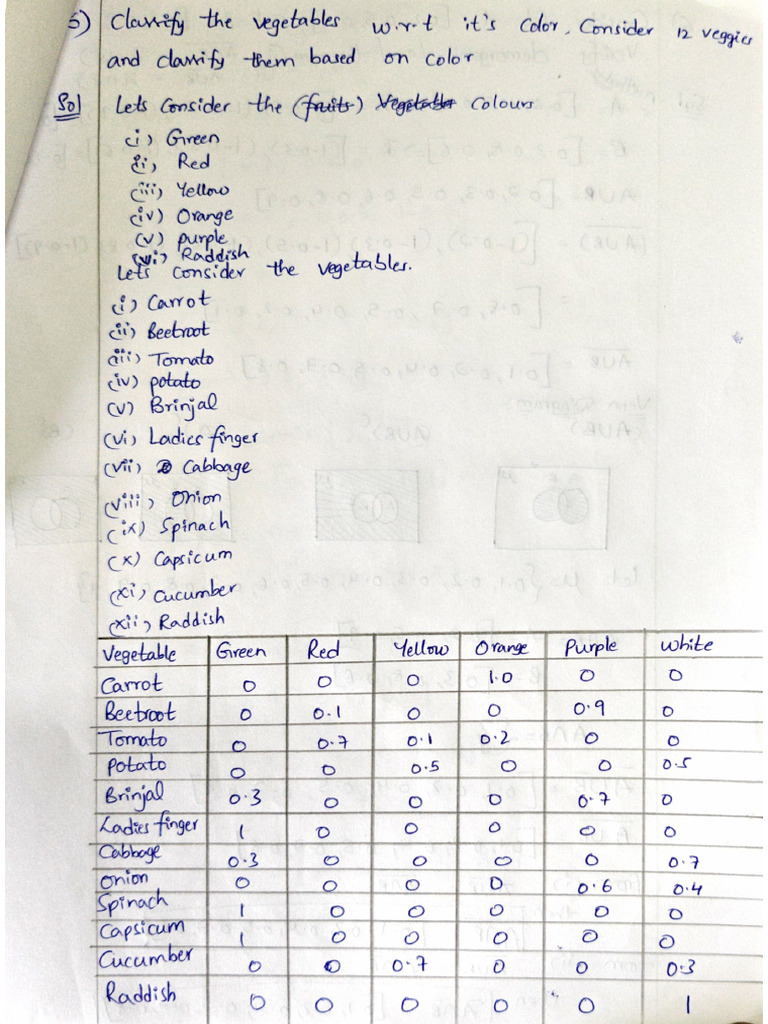 5) Classify the vegetables w.r.t it's color. Consider 12 veggies
and classify them based on color
Sol Lets Consider the (fruits) Vegetable Colours
(i) Green
(ii) Red
(iii) Yellow
(iv) Orange
(v) purple
(vi) Raddish
Lets Consider the vegetables.
(i) Carrot
(ii) Beetroot
(iii) Tomato
(iv) potato
(v) Brinjal
(vi) Ladies finger
(vii) Cabbage
(viii) Onion
(ix) Spinach
(x) Capsicum
(xi) Cucumber
(xii) Raddish
Vegetable Green Red Yellow Orange Purple White
Carrot 0 0 0 1.0 0 0
Beetroot 0 0.1 0 0 0.9 0
Tomato 0 0.7 0.1 0.2 0 0
Potato 0 0 0.5 0 0 0.5
Brinjal 0.3 0 0 0 0.7 0
Ladies finger 1 0 0 0 0 0
Cabbage 0.3 0 0 0 0 0.7
Onion 0 0 0 0 0.6 0.4
Spinach 1 0 0 0 0 0
Capsicum 1 0 0 0 0 0
Cucumber 0 0 0.7 0 0 0.3
Raddish 0 0 0 0 0 1